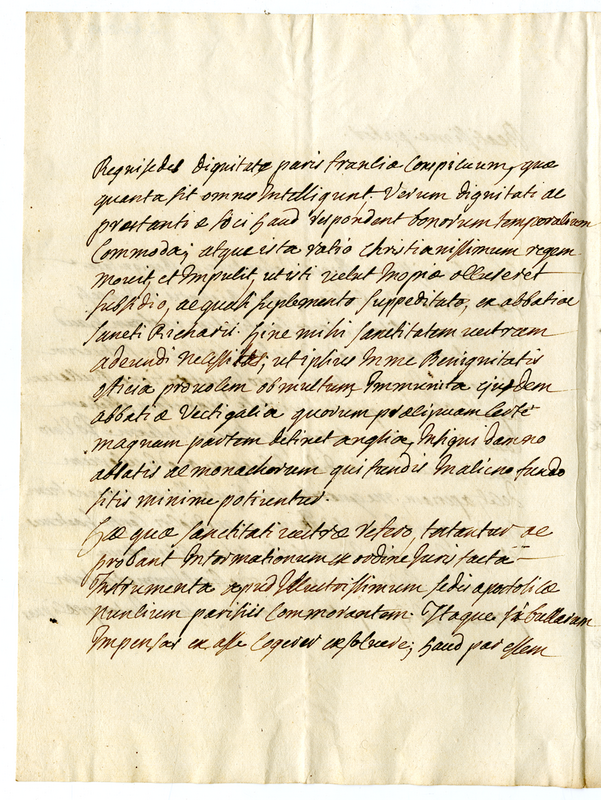 dignitate paris franciae Conspicuum, quae
quanta sit omnes Intelligunt. Verum dignitati ac
haud respondent bonorum temporalium
Commoda; atque ista ratio Christianissimum regem
movit, et Impulit, ut isti velut Inopiae
subsidio, ac quasi suplemento suppeditato, ex abbatia
sancti Richarii. hinc mihi sanctitatem vestram
adeundi necessitas, ut ipsius In me Benignitatis
officia provolem ob multum Imminuta ejusdem
abbatiae Vectigalia quorum praecipuam certe
magnam partem detinet anglia, Insigni danno
ablatis ac monachorum qui fundis In alieno fundo
sitis minime potiuntur.
haec quae sanctitati vestrae refero, testantur ac
probant Informationum ex ordine Juris facta
Instrumenta apud Illustrissimum sedis apostolicae
nuncium parisiis Commorantem. Itaque bullarum
Impensas ex asse exsolvere; haud par essem